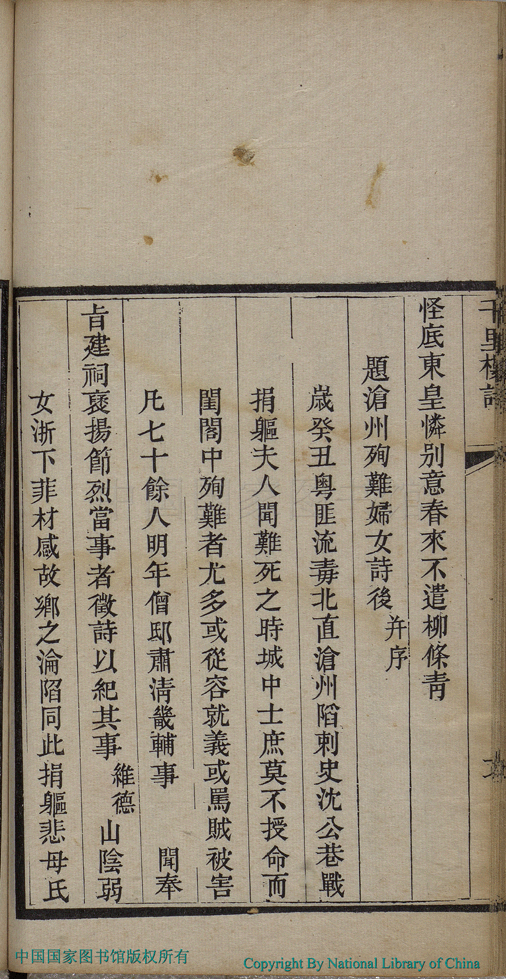 千里樓詩
怪底東皇憐别意春來不遣柳條青
題滄州殉難婦女詩後并序
歲癸丑粤匪流毒北直滄州陷刺史沈公巷戰
捐軀夫人聞難死之時城中士庶莫不授命而
閨閤中殉難者尤多或從容就義或罵賊被害
凡七十餘人明年僧邸肅清畿輔事 聞奉
旨建祠褒揚節烈當事者徵詩以紀其事維德山陰弱
女浙下菲材感故鄉之淪陷同此捐軀悲母氏
中国国家图书馆版权所有
Copyright By National Library of China